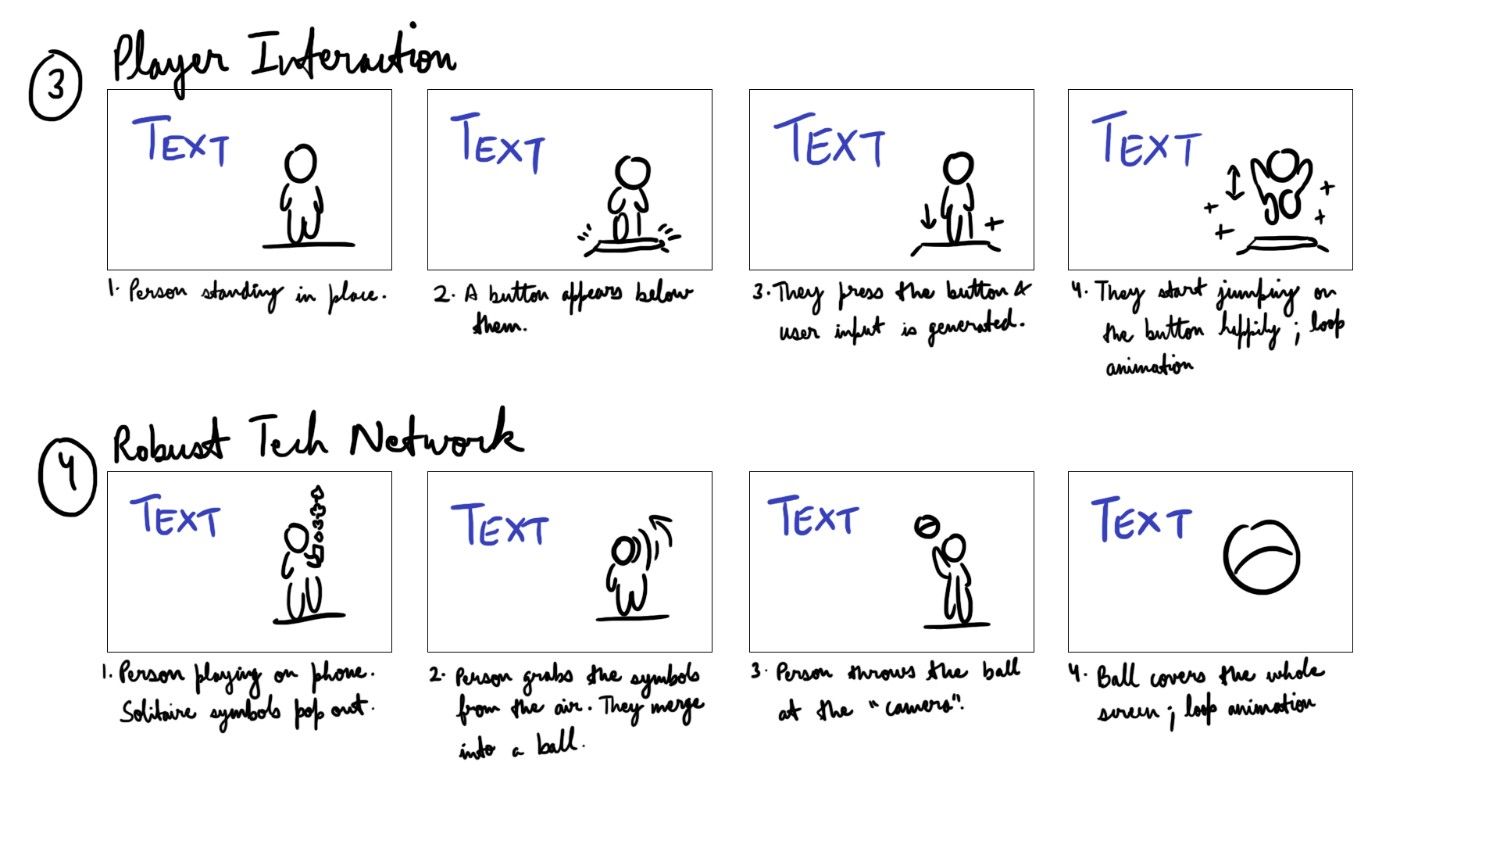 3
Player Interaction
TEXT
TEXT
TEXT
TEXT
1. Person standing in place.
2. A button appears below
them.
3. They press the button &
user input is generated.
4. They start jumping on
the button happily ; loop
animation
4
Robust Tech Network
TEXT
TEXT
TEXT
TEXT
1. Person playing on phone.
Solitaire symbols pop out.
2. Person grabs the symbols
from the air. They merge
into a ball.
3. Person throws the ball
at the "camera".
4. Ball covers the whole
screen ; loop animation